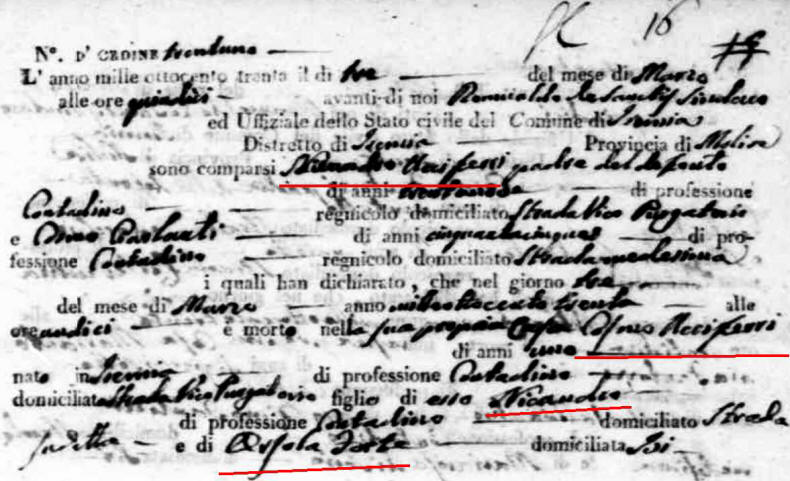 16
N°. D'ORDINE trentuno
L'anno mille ottocento trenta il dì tre del mese di Marzo
alle ore quindici avanti di noi Romualdo de Sanctis Sindaco
ed Uffiziale dello Stato civile del Comune di Isernia
Distretto di Isernia Provincia di Molise
sono comparsi Nicandro Acciferri padre del defunto
di anni di professione
Contadino regnicolo domiciliato Strada Vico Purgatorio
e Cosmo di anni cinquantacinque di pro-
fessione Contadino regnicolo domiciliato Strada medesima
i quali han dichiarato, che nel giorno tre
del mese di Marzo anno milleottocento trenta alle
ore undici è morto nella sua propria Casa Cosmo Acciferri
di anni uno
nato in Isernia di professione Contadino
domiciliato Strada Vico Purgatorio figlio di esso Nicandro
di professione Contadino domiciliato Strada
sudetta e di Orsola Forte domiciliata Ivi